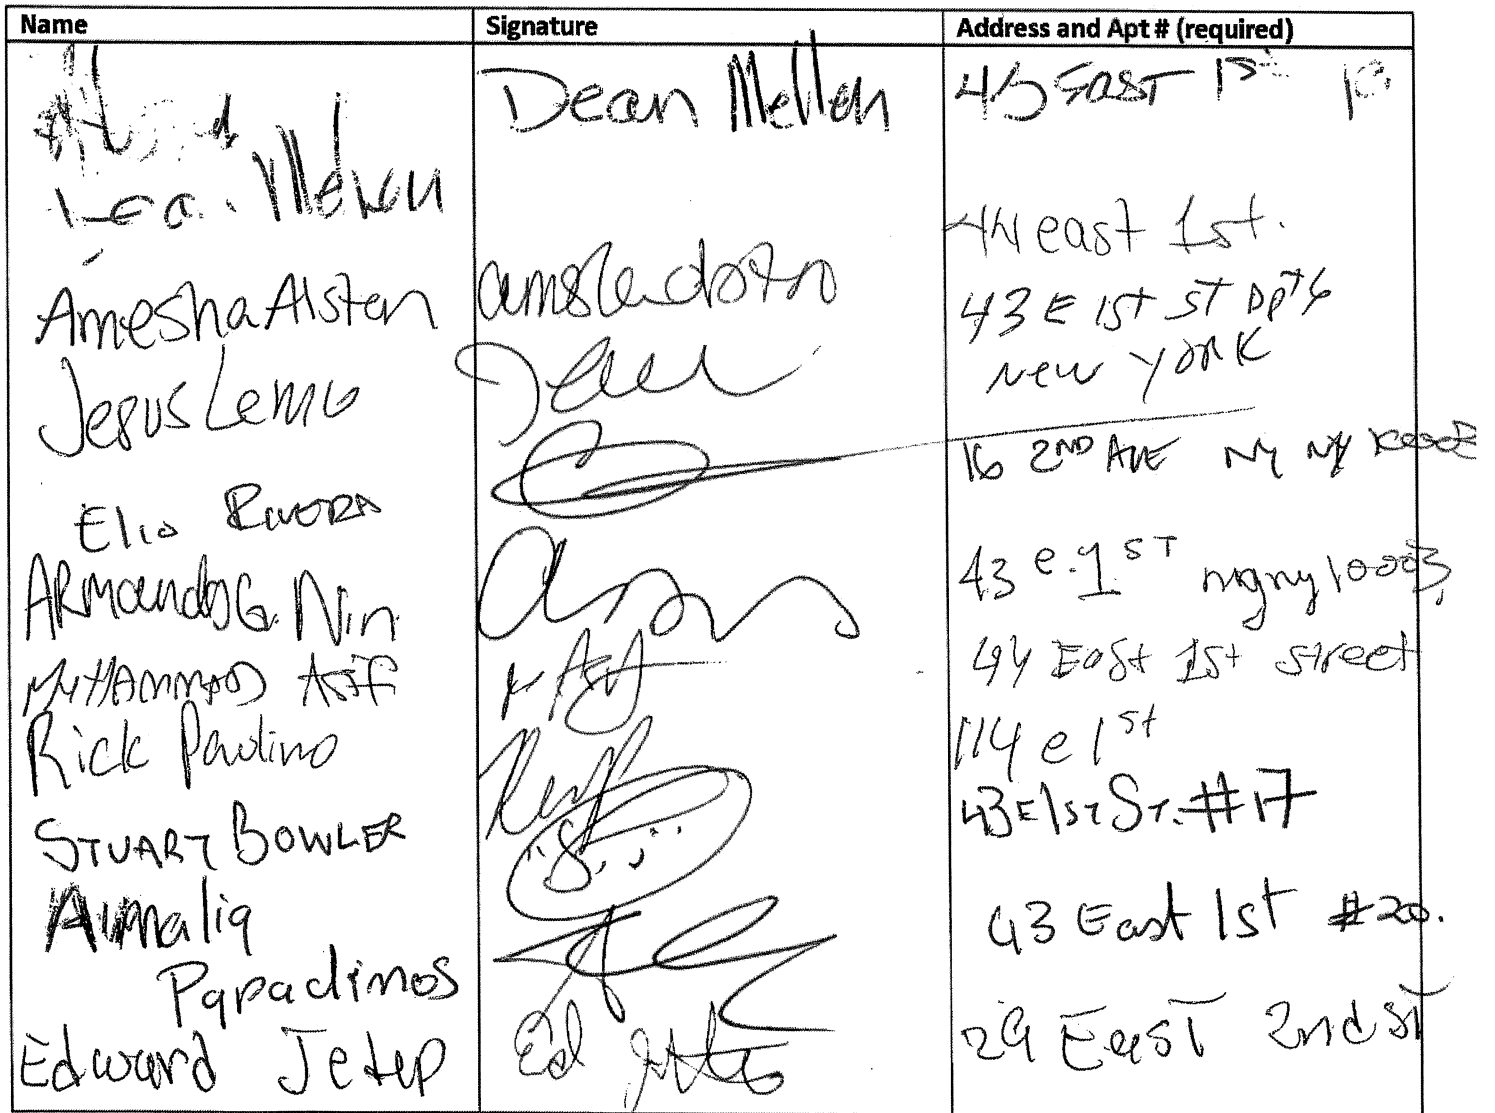 Name Signature Address and Apt # (required)
Dean Mellen 43 EAST 1ST
Mellen
44 east 1st.
Amesha Alsten 43 E 1st ST Apt 6
New YORK
Jesus Lemo
16 2ND AVE NY NY 10003
Elio RIVERA
ARmando G. Nin 43 e. 1 ST ny ny 10003
MUHAMMAD Asif 44 East 1st street
Rick Paulino 114 e 1st
STUART BOWLER 43 E 1ST ST. #17
43 East 1st #20.
Papadimos
Edward Jetep Ed 29 EAST 2nd ST